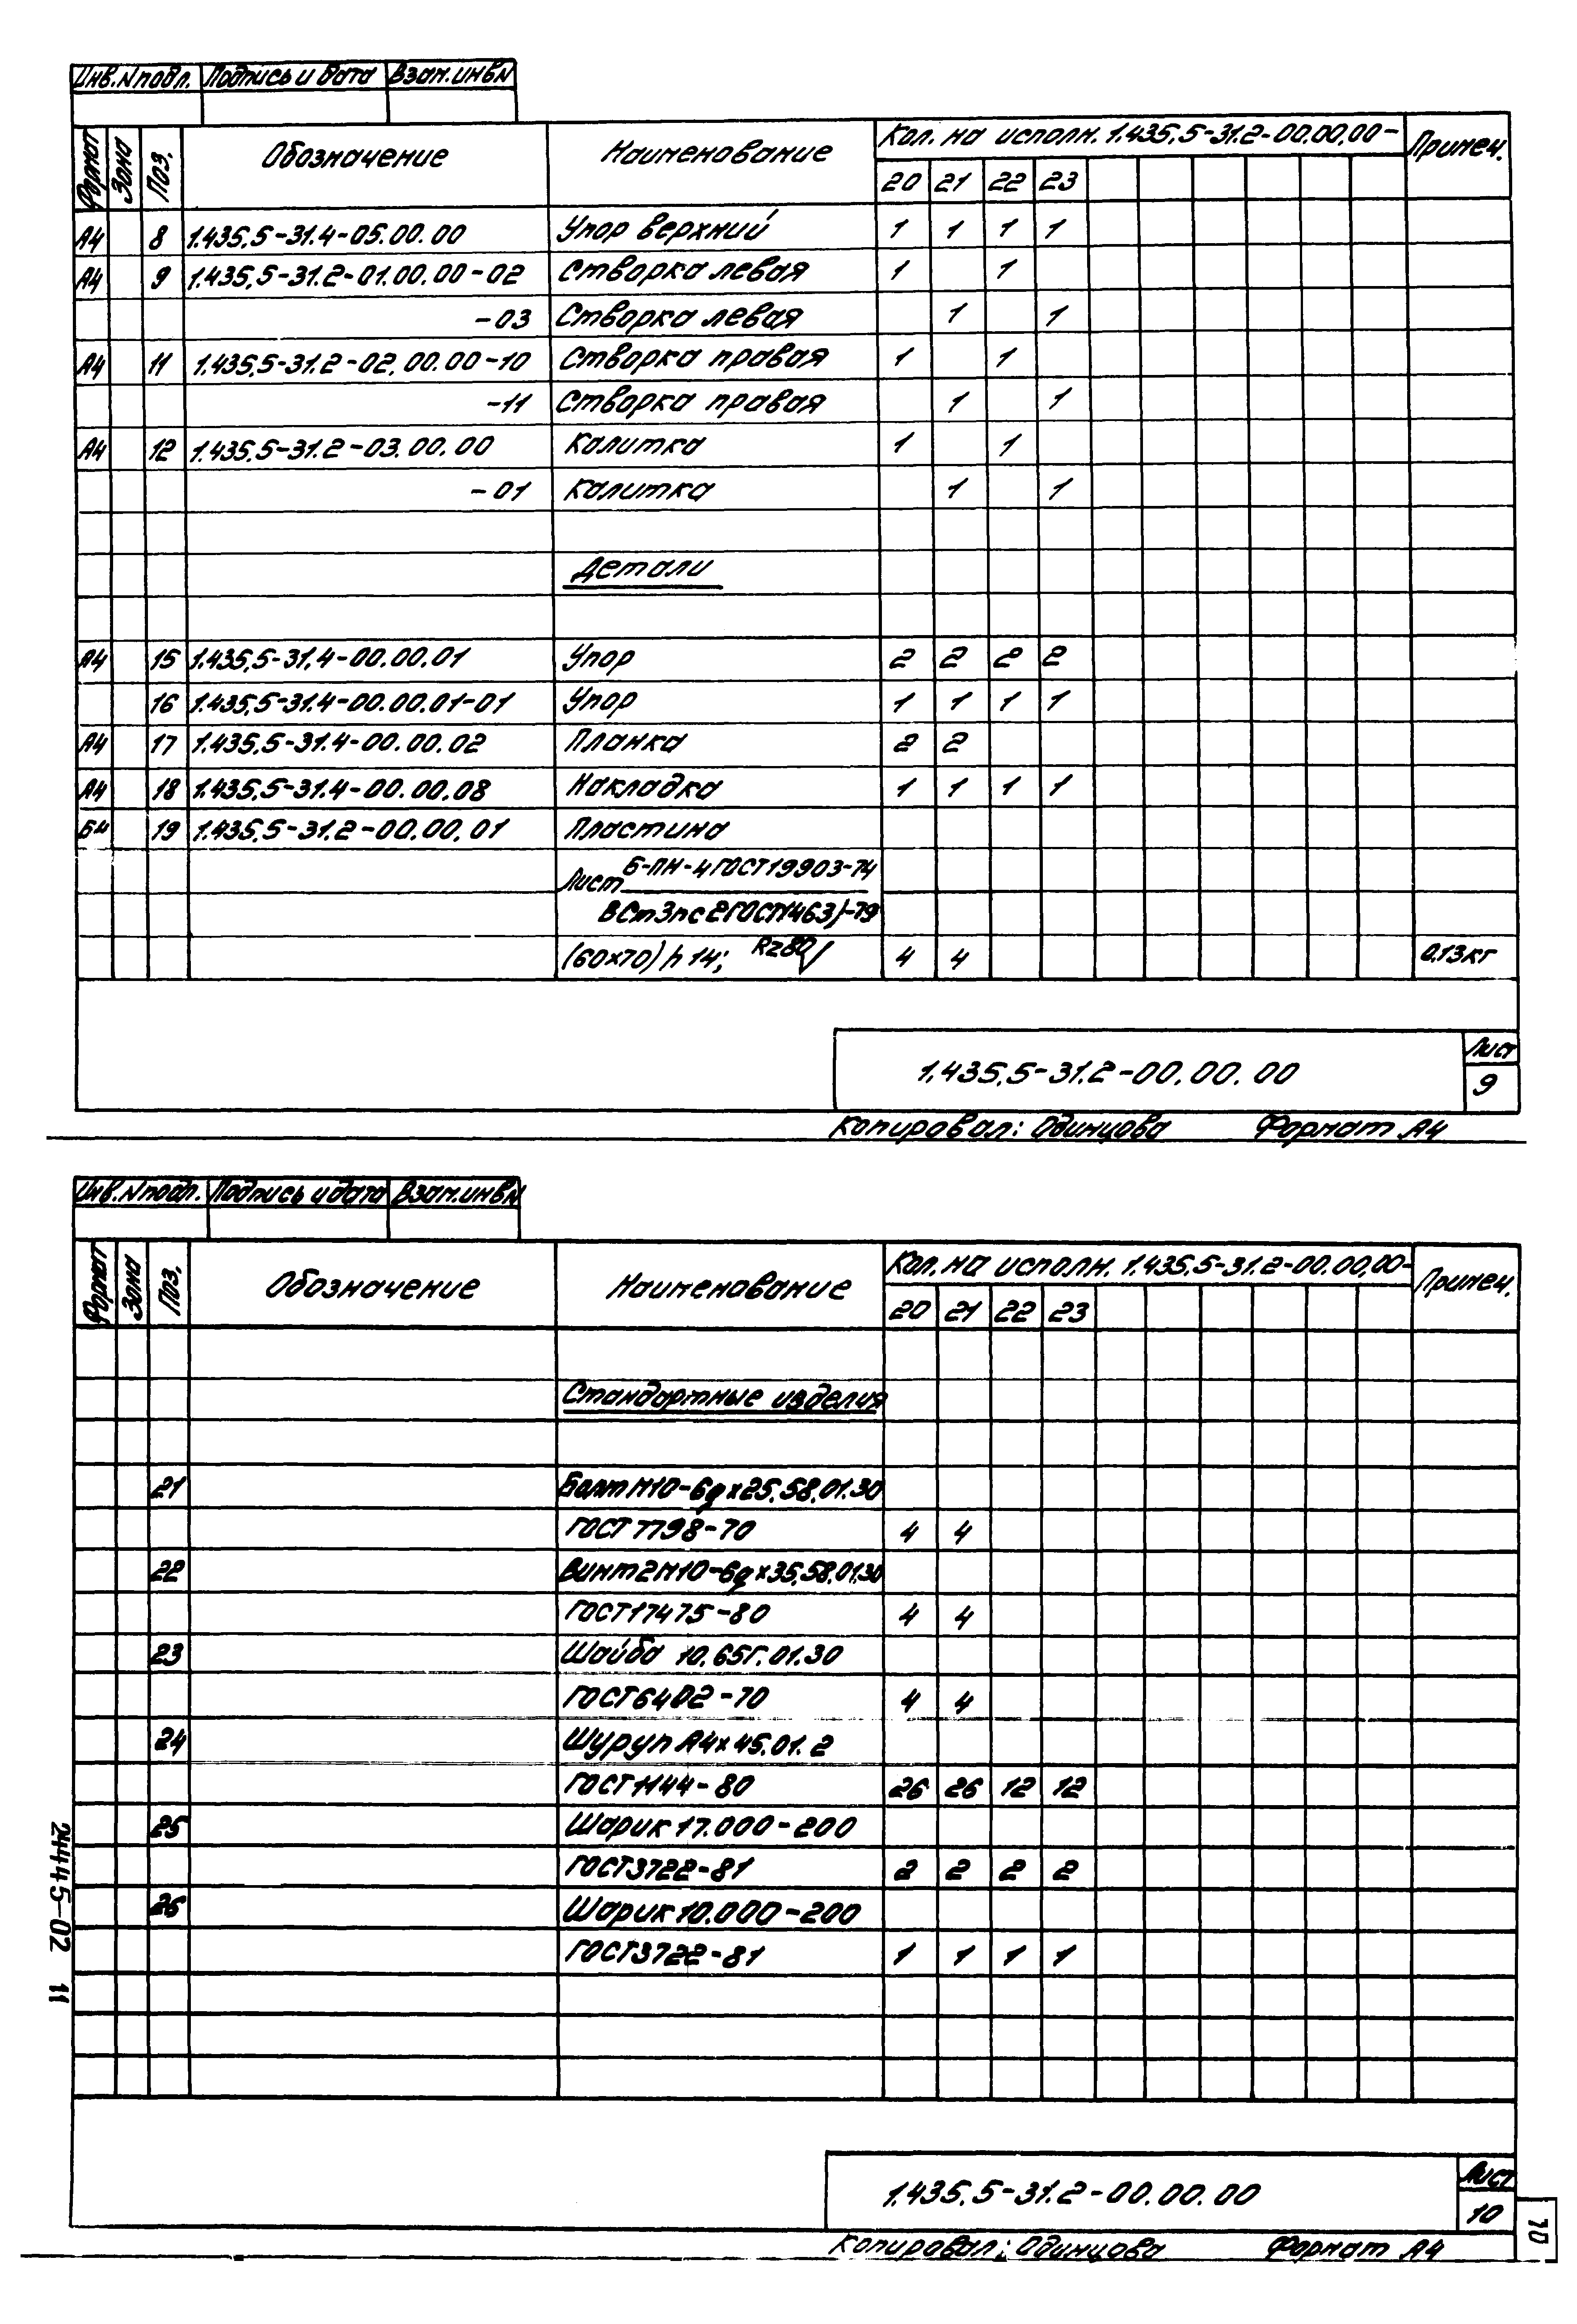 Инв.N подл. Подпись и дата Взам.инв.N
Формат Зона Поз. Обозначение Наименование Кол. на исполн. 1.435.5-31.2-00.00.00- Примеч.
20 21 22 23
А4 8 1.435.5-31.4-05.00.00 Упор верхний 1 1 1 1
А4 9 1.435.5-31.2-01.00.00-02 Створка левая 1 1
-03 Створка левая 1 1
А4 11 1.435.5-31.2-02.00.00-10 Створка правая 1 1
-11 Створка правая 1 1
А4 12 1.435.5-31.2-03.00.00 Калитка 1 1
-01 Калитка 1 1
Детали
А4 15 1.435.5-31.4-00.00.01 Упор 2 2 2 2
16 1.435.5-31.4-00.00.01-01 Упор 1 1 1 1
А4 17 1.435.5-31.4-00.00.02 Планка 2 2
А4 18 1.435.5-31.4-00.00.08 Накладка 1 1 1 1
БЧ 19 1.435.5-31.2-00.00.01 Пластина
Лист Б-ПН-4 ГОСТ 19903-74
ВСт3пс2 ГОСТ 14637-79
(60×70) h 14; Rz80 4 4 0.13кг
1.435.5-31.2-00.00.00 Лист
9
Копировал: Одинцова Формат А4
Инв.N подл. Подпись и дата Взам.инв.N
Формат Зона Поз. Обозначение Наименование Кол. на исполн. 1.435.5-31.2-00.00.00- Примеч.
20 21 22 23
Стандартные изделия
21 Болт М10-6g×25.58.01.30
ГОСТ 7798-70 4 4
22 Винт 2М10-6g×35.58.01.30
ГОСТ 17475-80 4 4
23 Шайба 10.65Г.01.30
ГОСТ 6402-70 4 4
24 Шуруп А4×45.01.2
ГОСТ 1144-80 26 26 12 12
25 Шарик 17.000-200
ГОСТ 3722-81 2 2 2 2
26 Шарик 10.000-200
ГОСТ 3722-81 1 1 1 1
24445-02 11
1.435.5-31.2-00.00.00 Лист
10
10
Копировал: Одинцова Формат А4